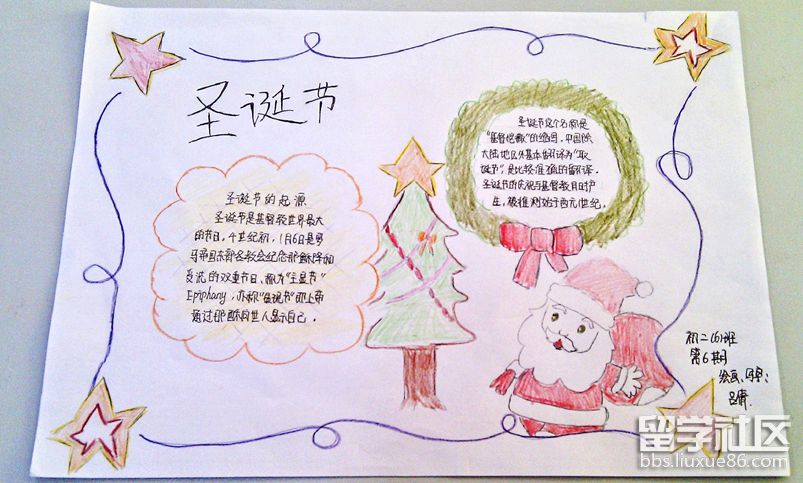 圣诞节
圣诞节的起源
圣诞节是基督教世界最大
的节日。4世纪初,1月6日是罗
马帝国东部各教会纪念耶稣降和
受洗的双重节日、称为"主显节"
Epiphany,亦称"显现节"即上帝
通过耶稣向世人显示自己。
圣诞节这个名称是
"基督弥撒"的缩写。中国除
大陆地区外基本翻译为"耶
诞节",是比较准确的翻译。
圣诞节的庆祝与基督教同时
生,被推测始于西元1世纪。
初二(6)班
第6期
绘画、
留学社区
bbs.liuxue86.com